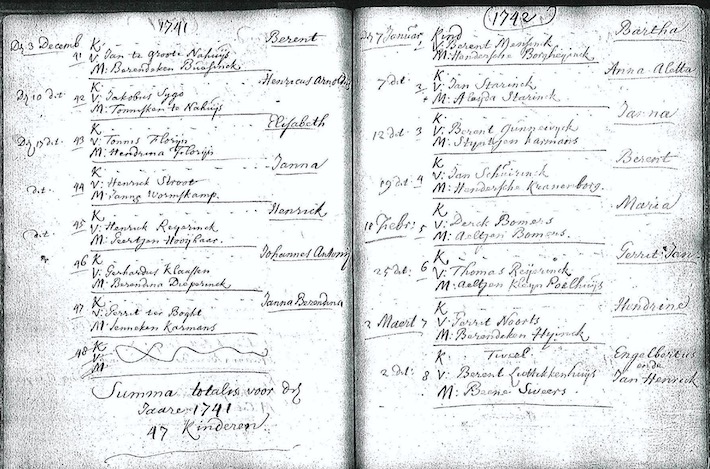 1741
Dẏ 3 Decemb K Berent
41 V: Jan te groote Nahuijs
M: Berendeken Buesinck
Henricus Arnoldus
Dẏ 10 dit 42 K
V: Jakobus Sygo
M: Tonnisken te Nahuijs
Elisabeth
43 K
V: Tonnis Florijn
M: Hendrina Florijn
Janna
dit. 44 K
V: Henrick Stroot
M: Janna Wormskamp.
Henrick
dit. 45 K
V: Henrick Reyerinck
M: Geertjen Hooijkaer.
Johannes Antonij
46 K
V: Gerhardus Klaassen
M: Berendina Dieperinck
Janna Berendina
47 K
V: Gerrit ter Boght
M: Jenneken Karmans
48 K
V:
M:
Summa totalis voor dẏ
Jaarer 1741
47 Kinderen
1742
Dẏ 7 Januar Kind Bartha
1 V: Berent Mensinck
M: Hendersche Borgheijnck
Anna Aletta
7 dit: 2 K
V: Jan Starinck
M: Aleyda Starinck
Janna
12 dit 3 K
V: Berent Gunnewyck
M: Styntjen Karmans
Berent
19 dit 4 K
V: Jan Schuirinck
M: Hendersche Kranenborg.
Maria
Febr: 5 K
V: Derck Bomers
M: Aeltjan Bomers
Gerrit Jan
25 dit: 6 K
V: Thomas Reijerinck
M: Aeltjen Kleyn Poelhuijs
Hendrine
2 Maert 7 K
V: Gerrit Noorts
M: Berendeken Hyinck
K Tweel: Engelbertus
ende
2 dit: 8 V: Berent Luttekkenhuijs Jan Henrick
M: Beene Sweers.